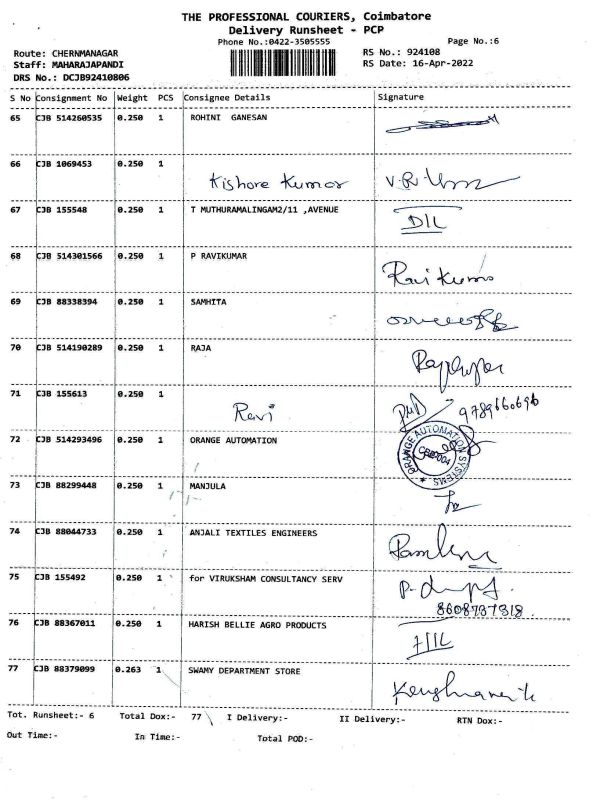 THE PROFESSIONAL COURIERS, Coimbatore
Delivery Runsheet - PCP
Phone No.:0422-3505555
Page No.:6
Route: CHERNMANAGAR
RS No.: 924108
Staff: MAHARAJAPANDI
RS Date: 16-Apr-2022
DRS No.: DCJB92410806
S No Consignment No Weight PCS Consignee Details Signature
65 CJB 514260535 0.250 1 ROHINI GANESAN
66 CJB 1069453 0.250 1
Kishore Kumar
67 CJB 155548 0.250 1 T MUTHURAMALINGAM2/11 ,AVENUE
D/L
68 CJB 514301566 0.250 1 P RAVIKUMAR
Ravi Kumar
69 CJB 88338394 0.250 1 SAMHITA
70 CJB 514190289 0.250 1 RAJA
71 CJB 155613 0.250 1
Ravi 9789660696
72 CJB 514293496 0.250 1 ORANGE AUTOMATION
ORANGE AUTOMATION SYSTEMS
73 CJB 88299448 0.250 1 MANJULA
74 CJB 88044733 0.250 1 ANJALI TEXTILES ENGINEERS
75 CJB 155492 0.250 1 for VIRUKSHAM CONSULTANCY SERV
8608737318
76 CJB 88367011 0.250 1 HARISH BELLIE AGRO PRODUCTS
77 CJB 88379099 0.263 1 SWAMY DEPARTMENT STORE
Tot. Runsheet:- 6 Total Dox:- 77 I Delivery:- II Delivery:- RTN Dox:-
Out Time:- In Time:- Total POD:-